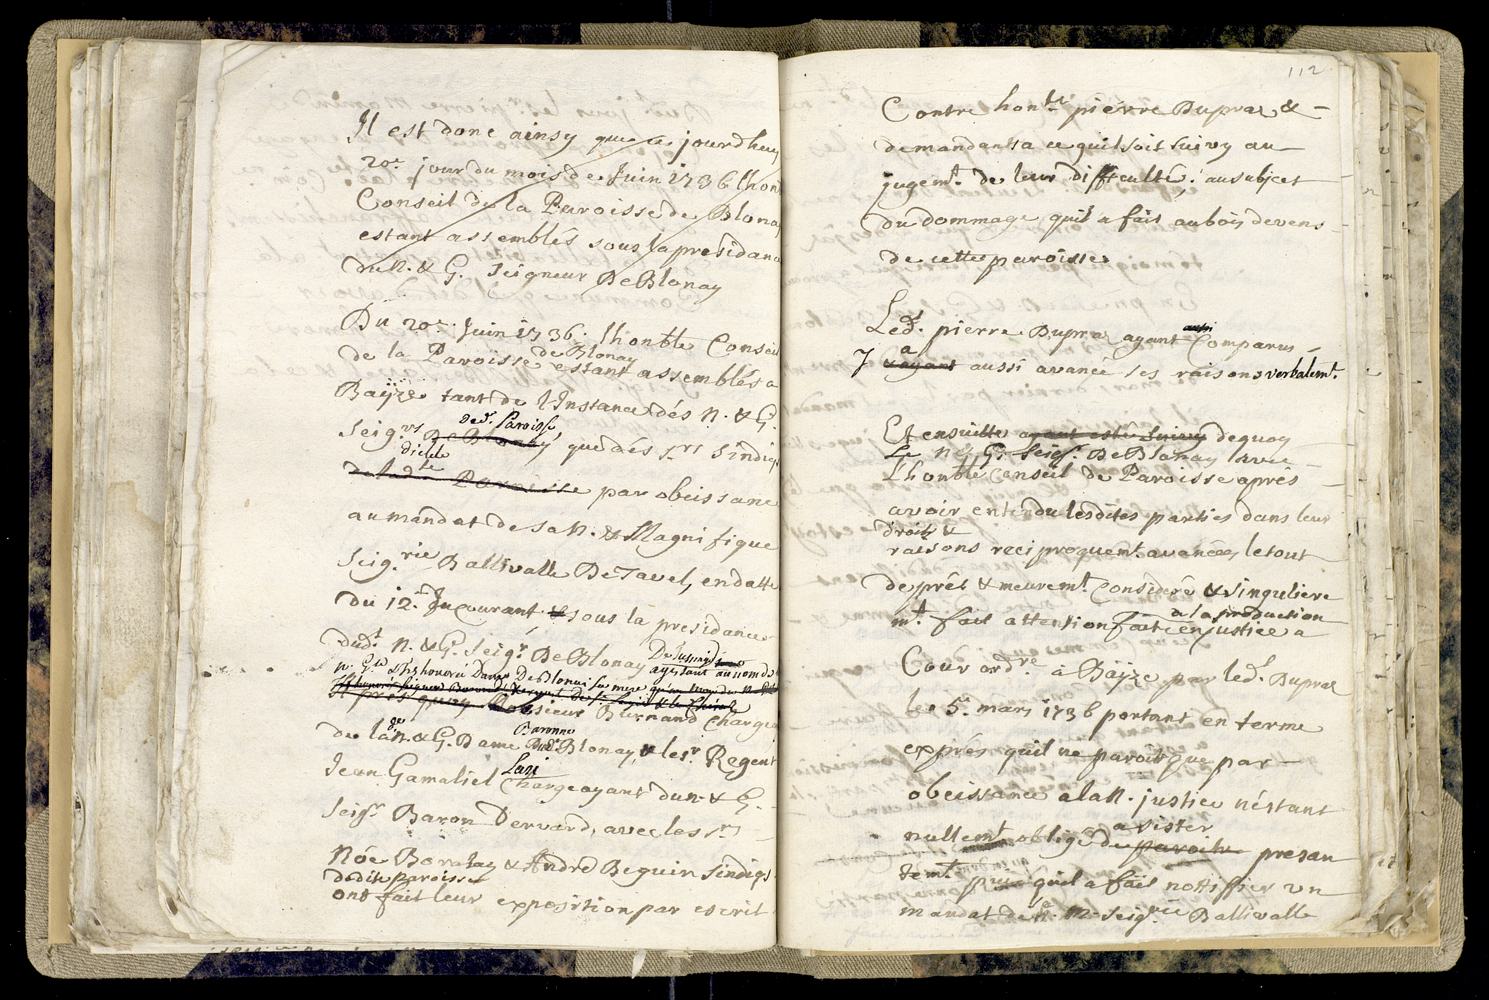 Il est donc ainsy que ce jourdhuy
20e. jour du mois de Juin 1736 lhon
Conseil de la Paroisse de Blonay
estant assemblés sous la presidance
du N. & G. Seigneur De Blonay
Du 20e. Juin 1736. lhonble Conseil
de Blonay
de la Paroisse estant assemblés a
Baÿze tant de l'Instance dés N. & G.
ded. Paroisse
Seigrs De Blonay que dés Srs Sindiqs
dicelle
de ladte Paroisse par obeissance
au mandat de sa N. & Magnifique
Seig.rie Ballivalle De Tavel, en datte
du 12.e du courant & sous la presidance
dudt. N. & G. Seigr. De Blonay
agissant au nom de
Apres quoy Monsieur Burnand charge
de la N. & G. Dame Baronne De Blonay, & le sr. Regent
Jean Gamaliel Lari Chargeayant du N. & G.
Seigr Baron Dervard, avec les Srs
Nöe Boraley & André Beguin Sindiqs
dedite paroisse
ont fait leur exposition par escrit
112
Contre honble pierre Dupraz & –
demandant a ce quil soit suivy au –
jugemt. de leur difficulté, au subjet
du dommage quil a fait au bois devens
de cette paroisse
Ledt. pierre Dupraz ayant aussi Comparus
J a ayant aussi avancé ses raisons verbalemt.
Et ensuitte ayant estée suivy dequoy
Le N & G. Seigr. De Blonay avec
L'honble Conseil de Paroisse aprés
avoir entendu lesdites parties dans leur
droits &
raisons reciproquemt. avancées, le tout
de prêt & meuremt. Consideré & singuliere
mt. fait attention a la production
fait en justice a
Cour ordre à Baÿze par ledt. Dupraz
le 5e. mars 1736 portant en terme
exprés quil ne paroit que par –
obeissance a la N. justice nëstant
nullemt obligé de paroitre a sister presan
temt puis quil a fait nottiffier un
mandat de sa N. M. Seig.rie Ballivalle